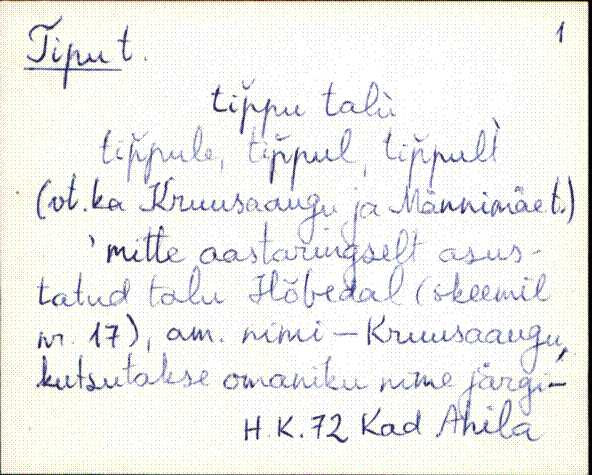 Tipu t. 1
tip̆pu talù
tip̆pule, tip̆pul, tip̆pult̀
(vt. ka Kruusaaugu ja Männimäe t.)
'mitte aastaringselt asus-
tatud talu Hõbedal (skeemil
nr. 17), am. nimi – Kruusaaugu,
kutsutakse omaniku nime järgi –
H.K. 72 Kad Ahila